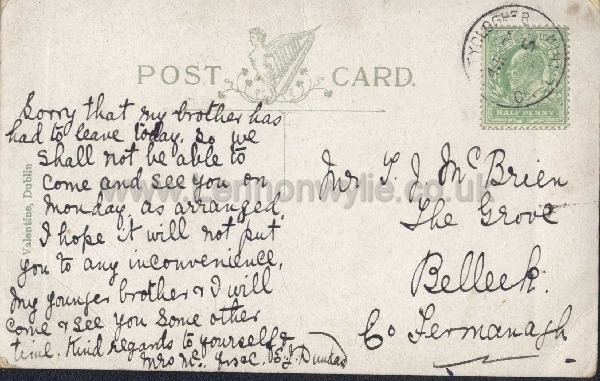 POST CARD.
Sorry that my brother has
had to leave today, so we
shall not be able to
come and see you on
Monday, as arranged,
I hope it will not put
you to any inconvenience,
My younger brother & I will
come & see you some other
time. Kind regards to yourself &
Mrs Mc. E. J. Dundas
Mr T. J McBrien
The Grove
Belleek.
Co Fermanagh
HALF PENNY
Valentine, Dublin
www.vernonwylie.co.uk